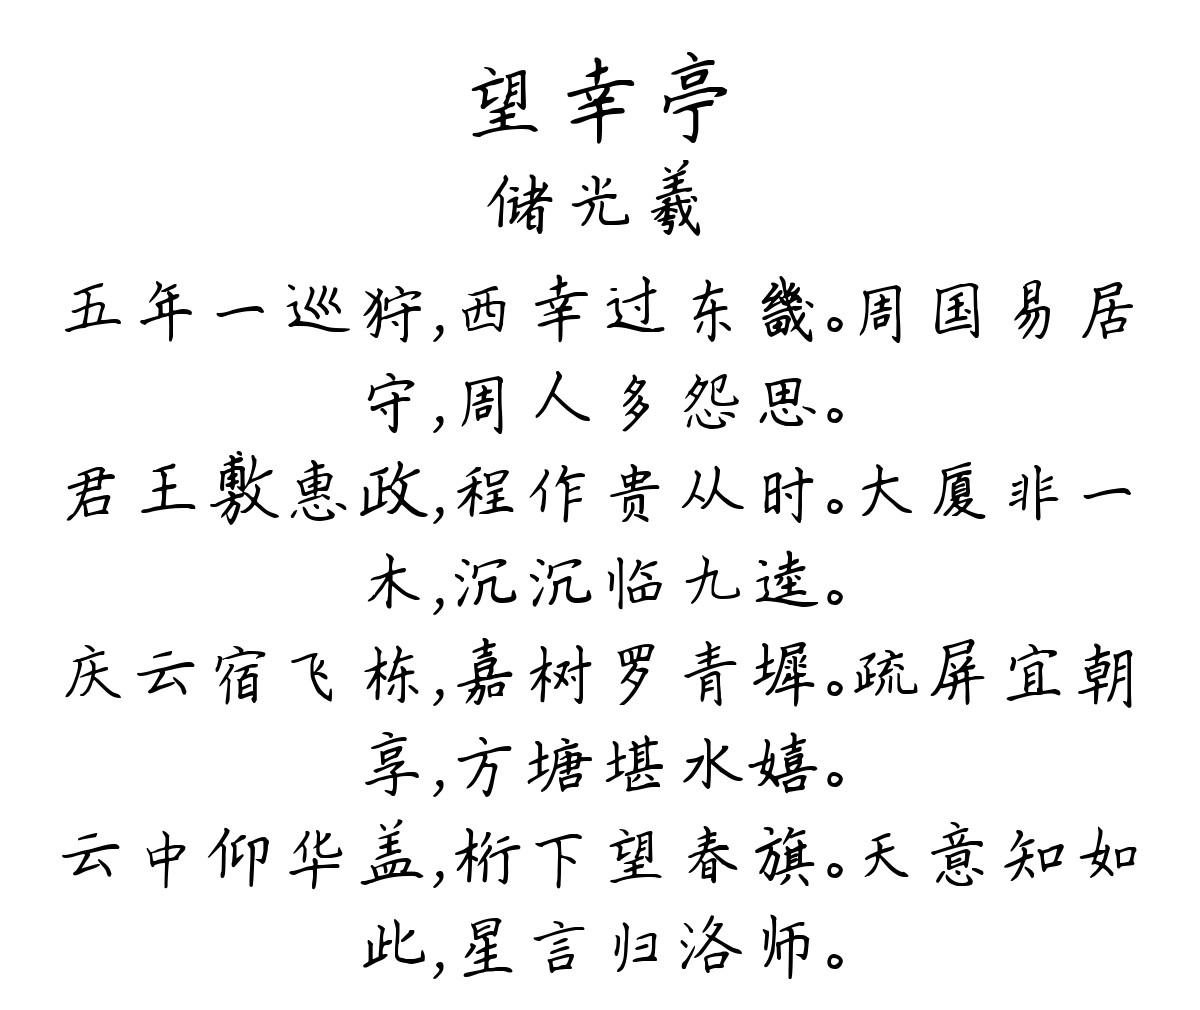 望幸亭
储光羲
五年一巡狩,西幸过东畿。周国易居
守,周人多怨思。
君王敷惠政,程作贵从时。大厦非一
木,沉沉临九逵。
庆云宿飞栋,嘉树罗青墀。疏屏宜朝
享,方塘堪水嬉。
云中仰华盖,桁下望春旗。天意知如
此,星言归洛师。